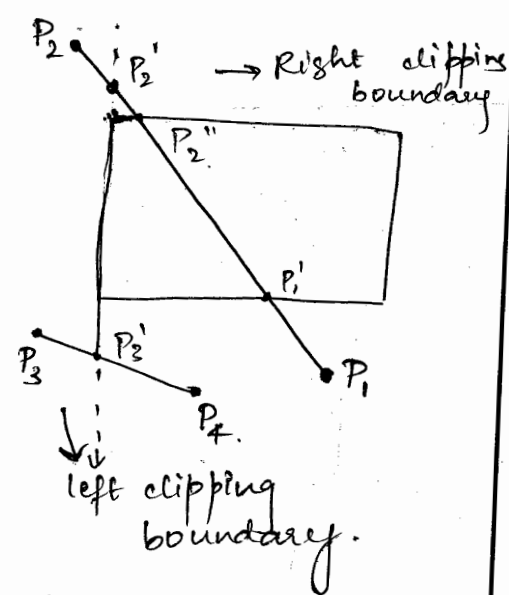 P2
P2'
→ Right clipping
boundary
P2"
P1'
P3
P3'
P1
P4.
left clipping
boundary.